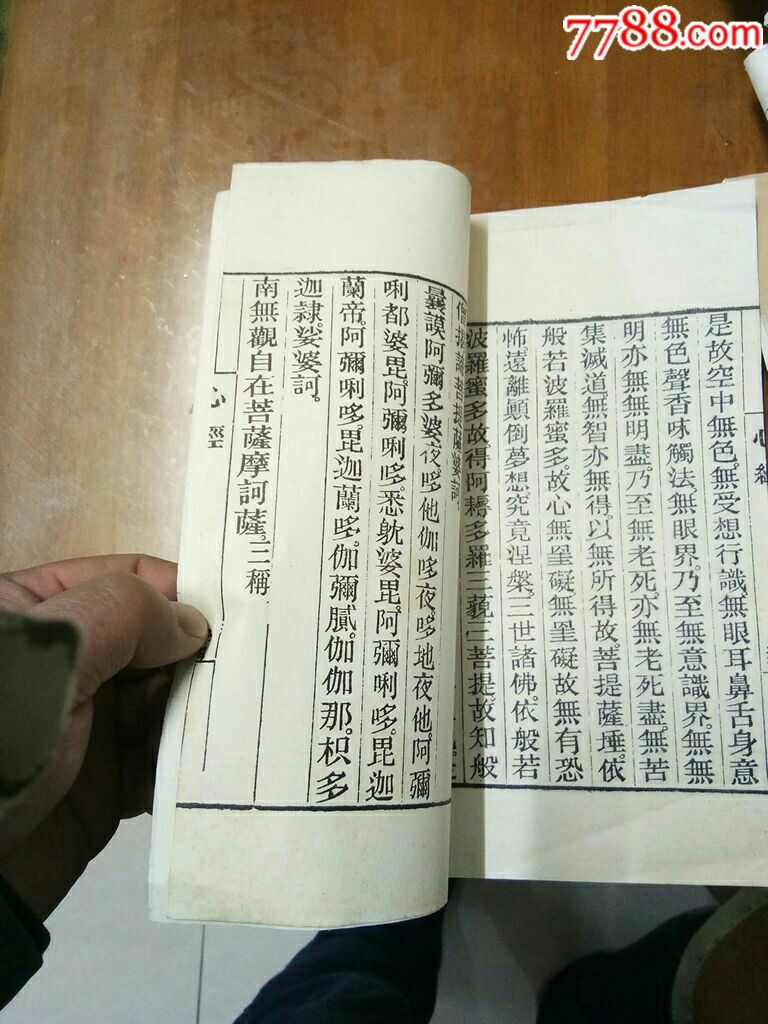 7788.com
是故空中無色。無受想行識。無眼耳鼻舌身意
無色聲香味觸法。無眼界。乃至無意識界。無無
明。亦無無明盡。乃至無老死。亦無老死盡。無苦
集滅道。無智亦無得。以無所得故。菩提薩埵。依
般若波羅蜜多。故心無罣礙。無罣礙故。無有恐
怖。遠離顛倒夢想。究竟涅槃。三世諸佛。依般若
波羅蜜多故。得阿耨多羅三藐三菩提。故知般
僧揭諦。菩提薩婆訶。
曩謨阿彌多婆夜。哆他伽哆夜。哆地夜他。阿彌
唎都婆毘。阿彌唎哆。悉耽婆毘。阿彌唎哆。毘迦
蘭帝。阿彌唎哆。毘迦蘭哆。伽彌膩。伽伽那。枳多
迦隸。娑婆訶。
南無觀自在菩薩摩訶薩。三稱
心經